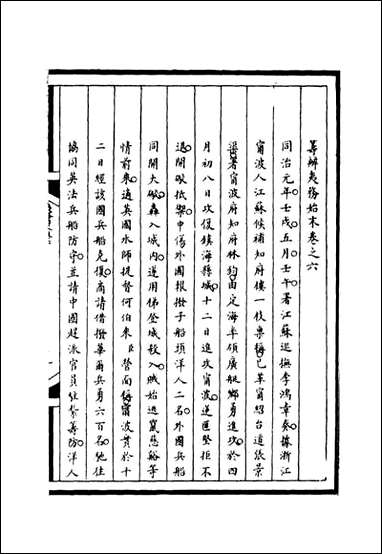 籌辦夷務始末卷之六
同治元年壬戌五月壬午署江蘇巡撫李鴻章奏據浙江
甯波人江蘇候補知府樓一枝稟稱已革甯紹台道張景
渠署甯波府知府林鈞由定海率碩廣艇鄉勇進攻於四
月初八日攻復鎮海縣城十二日進攻甯波逆匪堅拒不
退開礮抵禦中傷外國報撥子船頭洋人二名外國兵船
同開大礮轟入城內運用梯登城殺入賊始逃竄慈谿等
情前來適英國水師提督何伯來臣營面稱甯波賁於十
二日經該國兵船克復商請借撥華爾兵勇六百名馳往
協同英法兵船防守並請中國趕派官員住紮籌防洋人